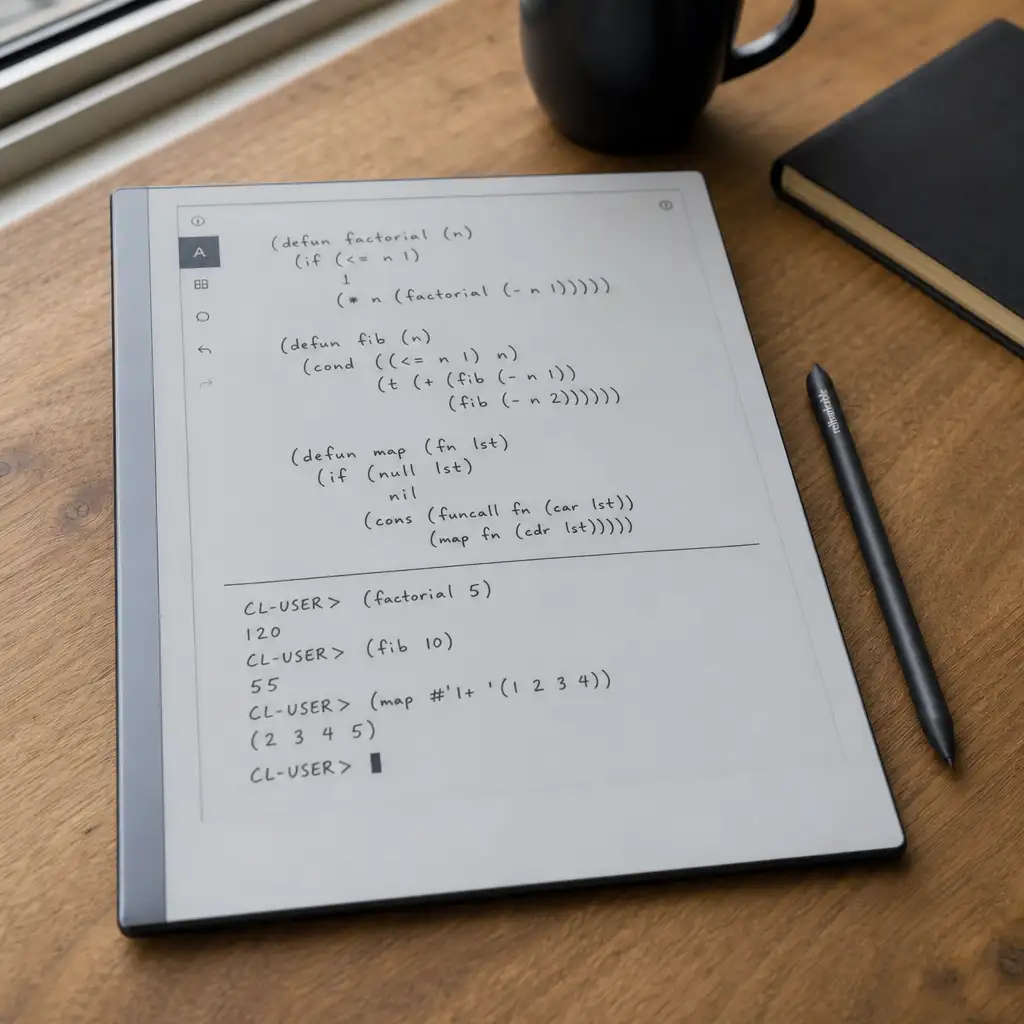 A
(defun factorial (n)
(if (<= n 1)
1
(* n (factorial (- n 1)))))
(defun fib (n)
(cond ((<= n 1) n)
(t (+ (fib (- n 1))
(fib (- n 2))))))
(defun map (fn lst)
(if (null lst)
nil
(cons (funcall fn (car lst))
(map fn (cdr lst)))))
CL-USER> (factorial 5)
120
CL-USER> (fib 10)
55
CL-USER> (map #'1+ '(1 2 3 4))
(2 3 4 5)
CL-USER>